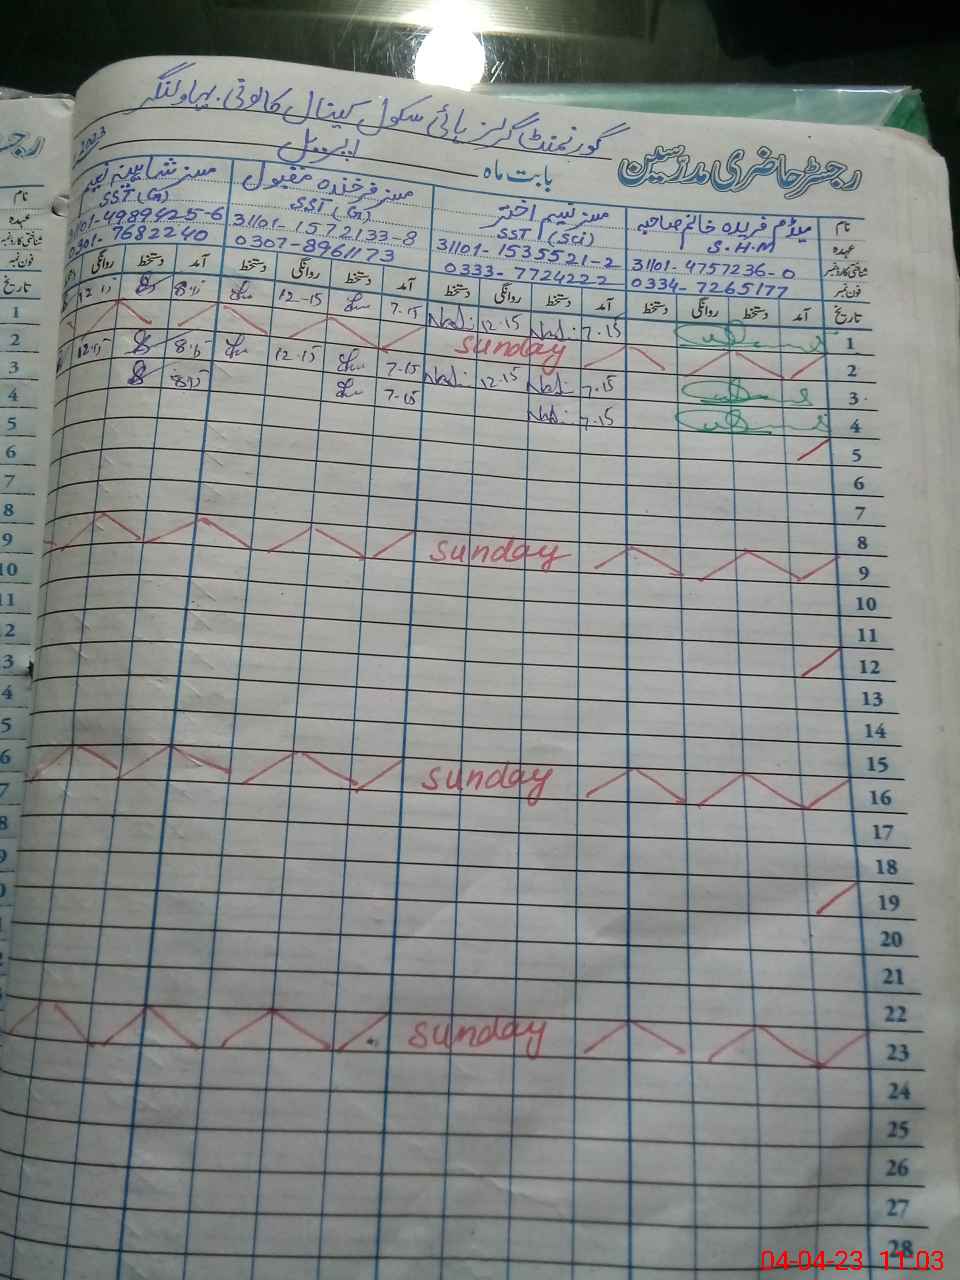 گورنمنٹ گرلز ہائی سکول کینال کالونی بہاولنگر
رجسٹر حاضری مدرسین
بابت ماہ اپریل 2023
نام میڈم فریدہ خانم صاحبہ مسز نسیم اختر مسز فرخندہ مقبول مسز شاہینہ
عہدہ S.H.M SST (Sci) SST (G) SST (G)
شناختی کارڈ نمبر 31101-4757236-0 31101-1535521-2 31101-1572133-8 31101-4989425-6
فون نمبر 0334-7265177 0333-7724222 0307-8961173 0301-7682240
تاریخ آمد دستخط روانگی دستخط آمد دستخط روانگی دستخط آمد دستخط روانگی دستخط آمد دستخط روانگی
1 7-15 12-15 7-15 12-15 8:15 12:15
2 Sunday
3 7-15 12-15 7-15 12-15 8:15 12:15
4 7-15 7-15 8:15
5
6
7
8
9 Sunday
10
11
12
13
14
15
16 Sunday
17
18
19
20
21
22
23 Sunday
24
25
26
27
28
04-04-23 11:03